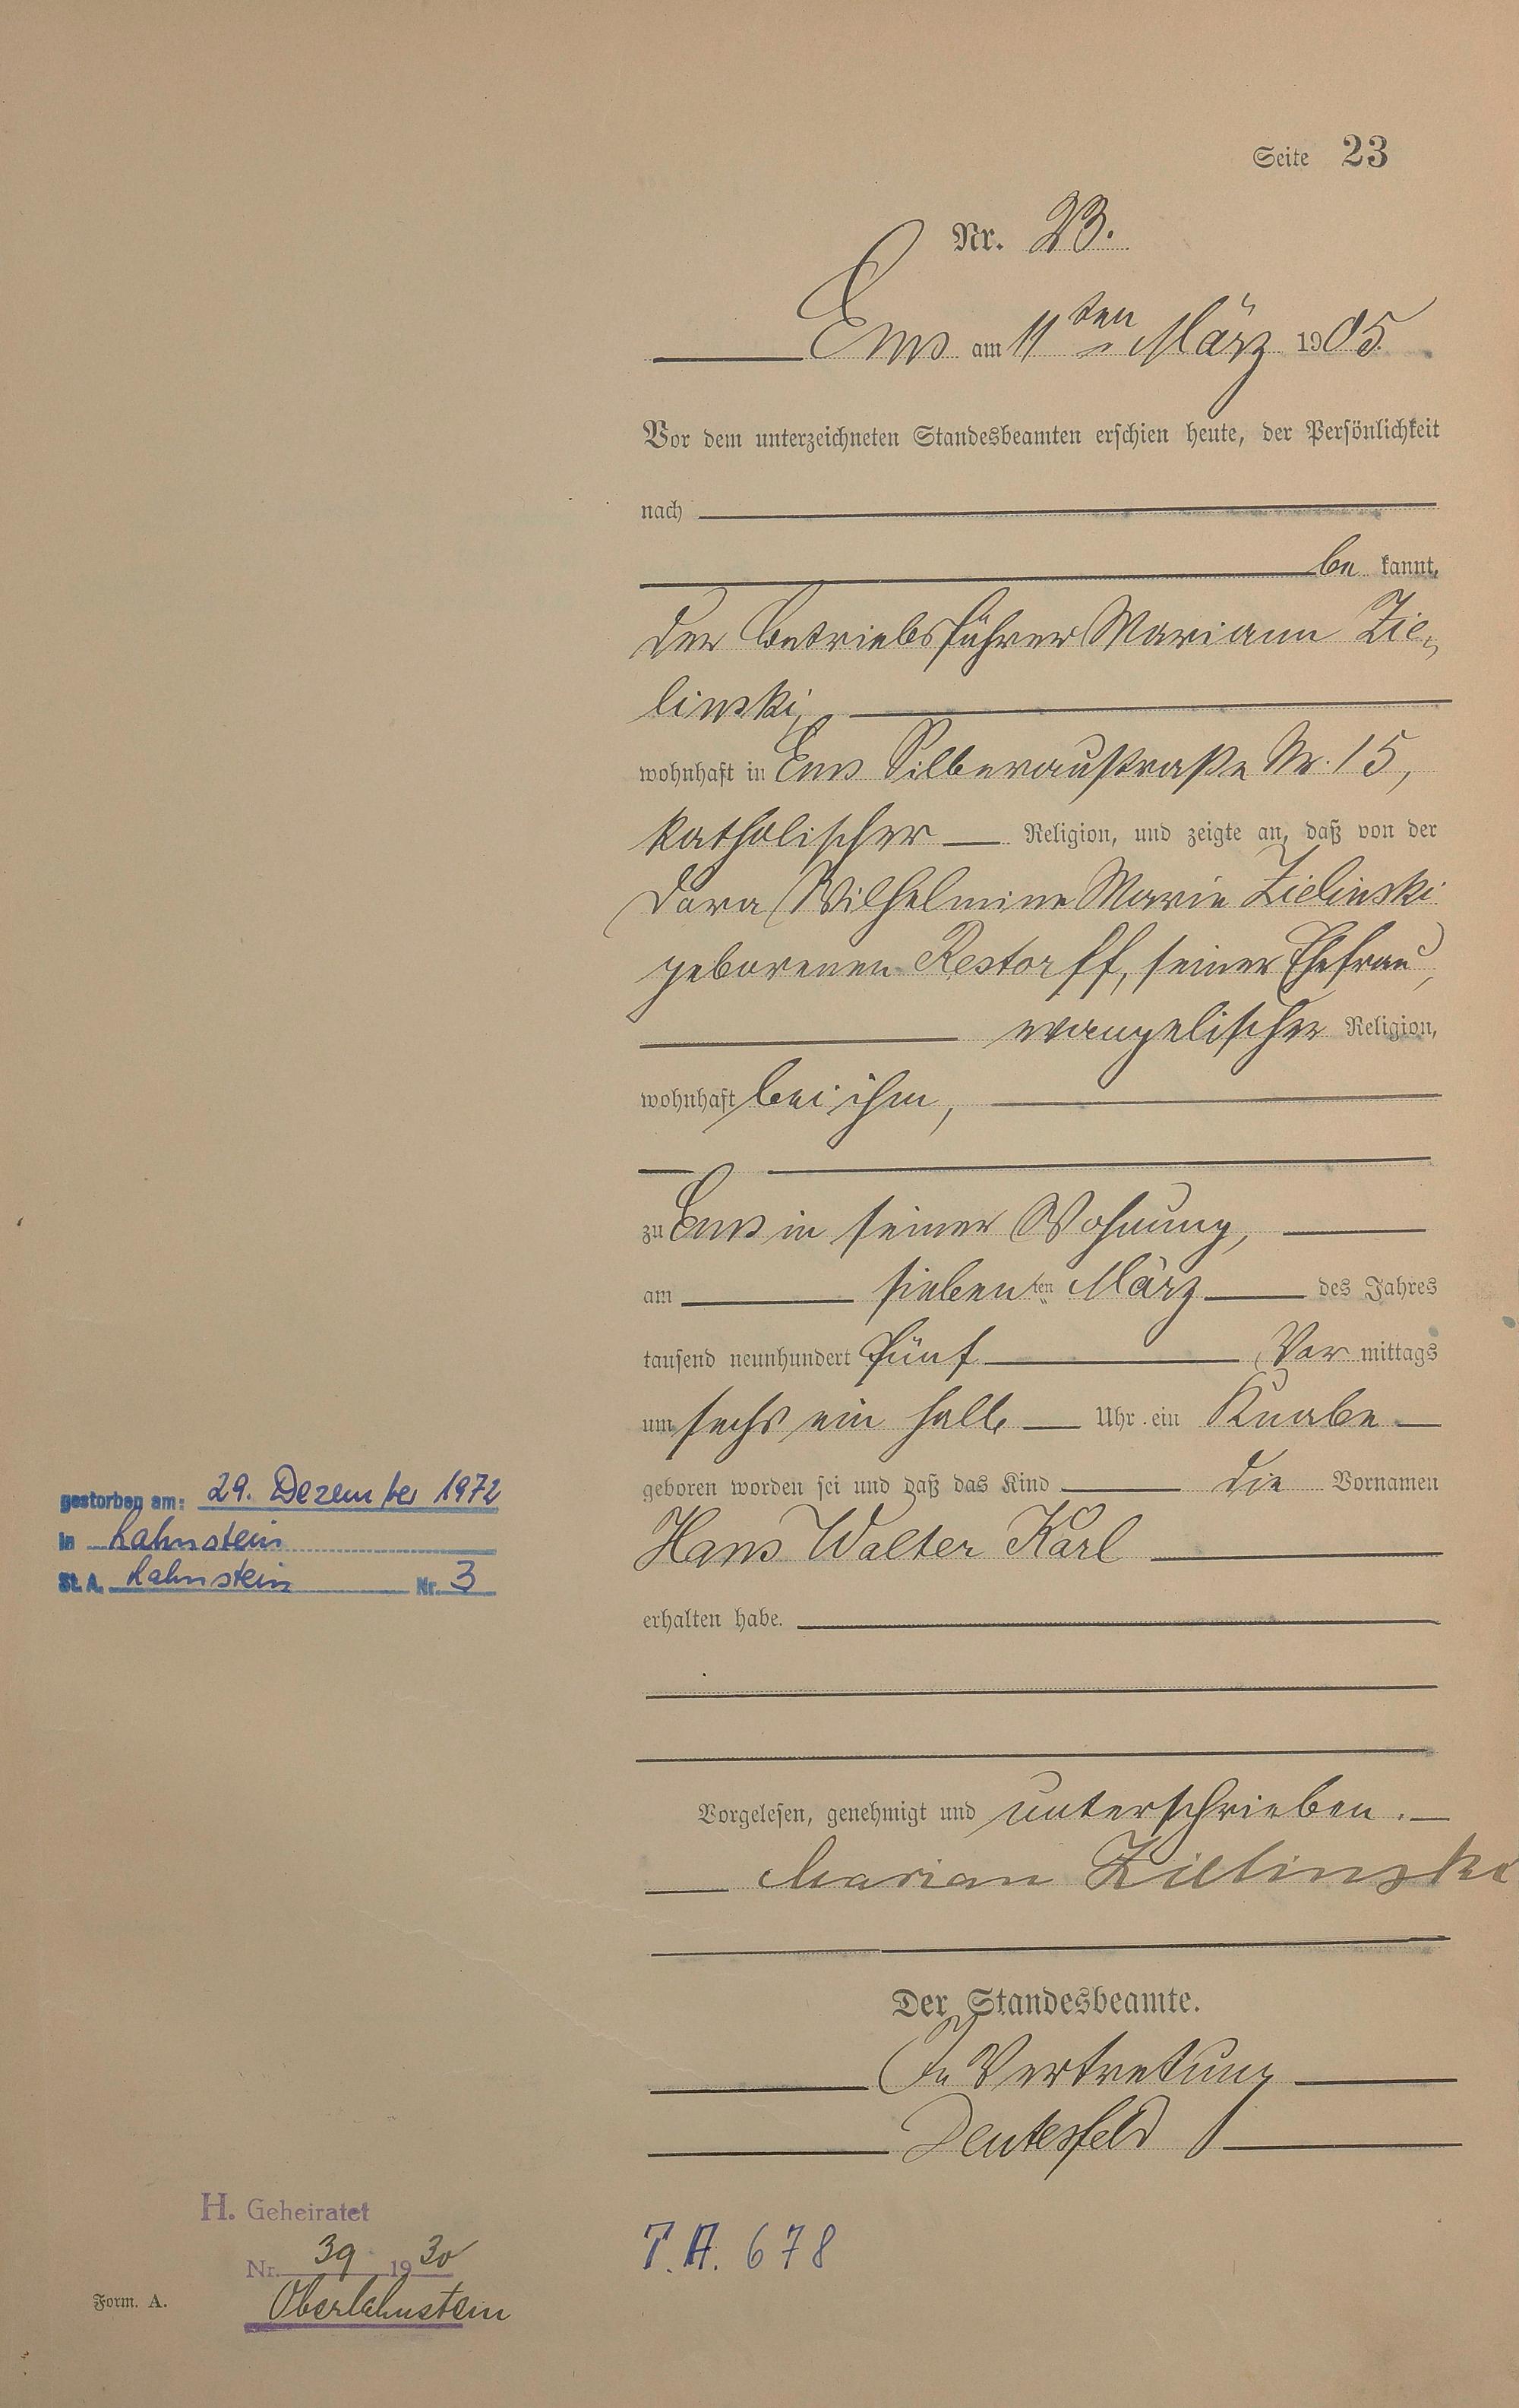 Seite 23
Nr. 23.
Ems am 11ten März 1905.
Vor dem unterzeichneten Standesbeamten erschien heute, der Persönlichkeit
nach
be kannt,
der Betriebsführer Mariann Zie-
linski,
wohnhaft in Ems Silberaustraße Nr. 15,
katholischer Religion, und zeigte an, daß von der
Dora Wilhelmine Marie Zielinski
geborenen Restorff, seiner Ehefrau,
evangelischer Religion,
wohnhaft bei ihm,
zu Ems in seiner Wohnung,
am siebenten März des Jahres
tausend neunhundert fünf Vor mittags
um sechs ein halb Uhr ein Knabe
geboren worden sei und daß das Kind die Vornamen
Hans Walter Karl
erhalten habe.
Vorgelesen, genehmigt und unterschrieben.
Marian Zielinski
Der Standesbeamte.
In Vertretung
Deutesfeld
gestorben am: 29. Dezember 1972
in Lahnstein
St. A. Lahnstein Nr. 3
H. Geheiratet
Nr. 39 1930
Oberlahnstein
Form. A.
T.A. 678